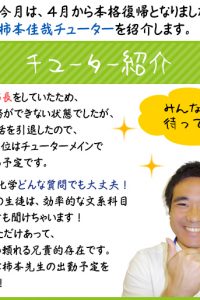 今月は、４月から本格復帰となりまし
柿本佳哉チューターを紹介します。
チューター紹介
長をしていたため、
ができない状態でしたが、
活を引退したので、
位はチューターメインで
る予定です。
みんな
待って
化学どんな質問でも大丈夫！
の生徒は、効率的な文系科目
も聞けちゃいます！
ただけあって、
頼れる兄貴的存在です。
柿本先生の出勤予定を
！